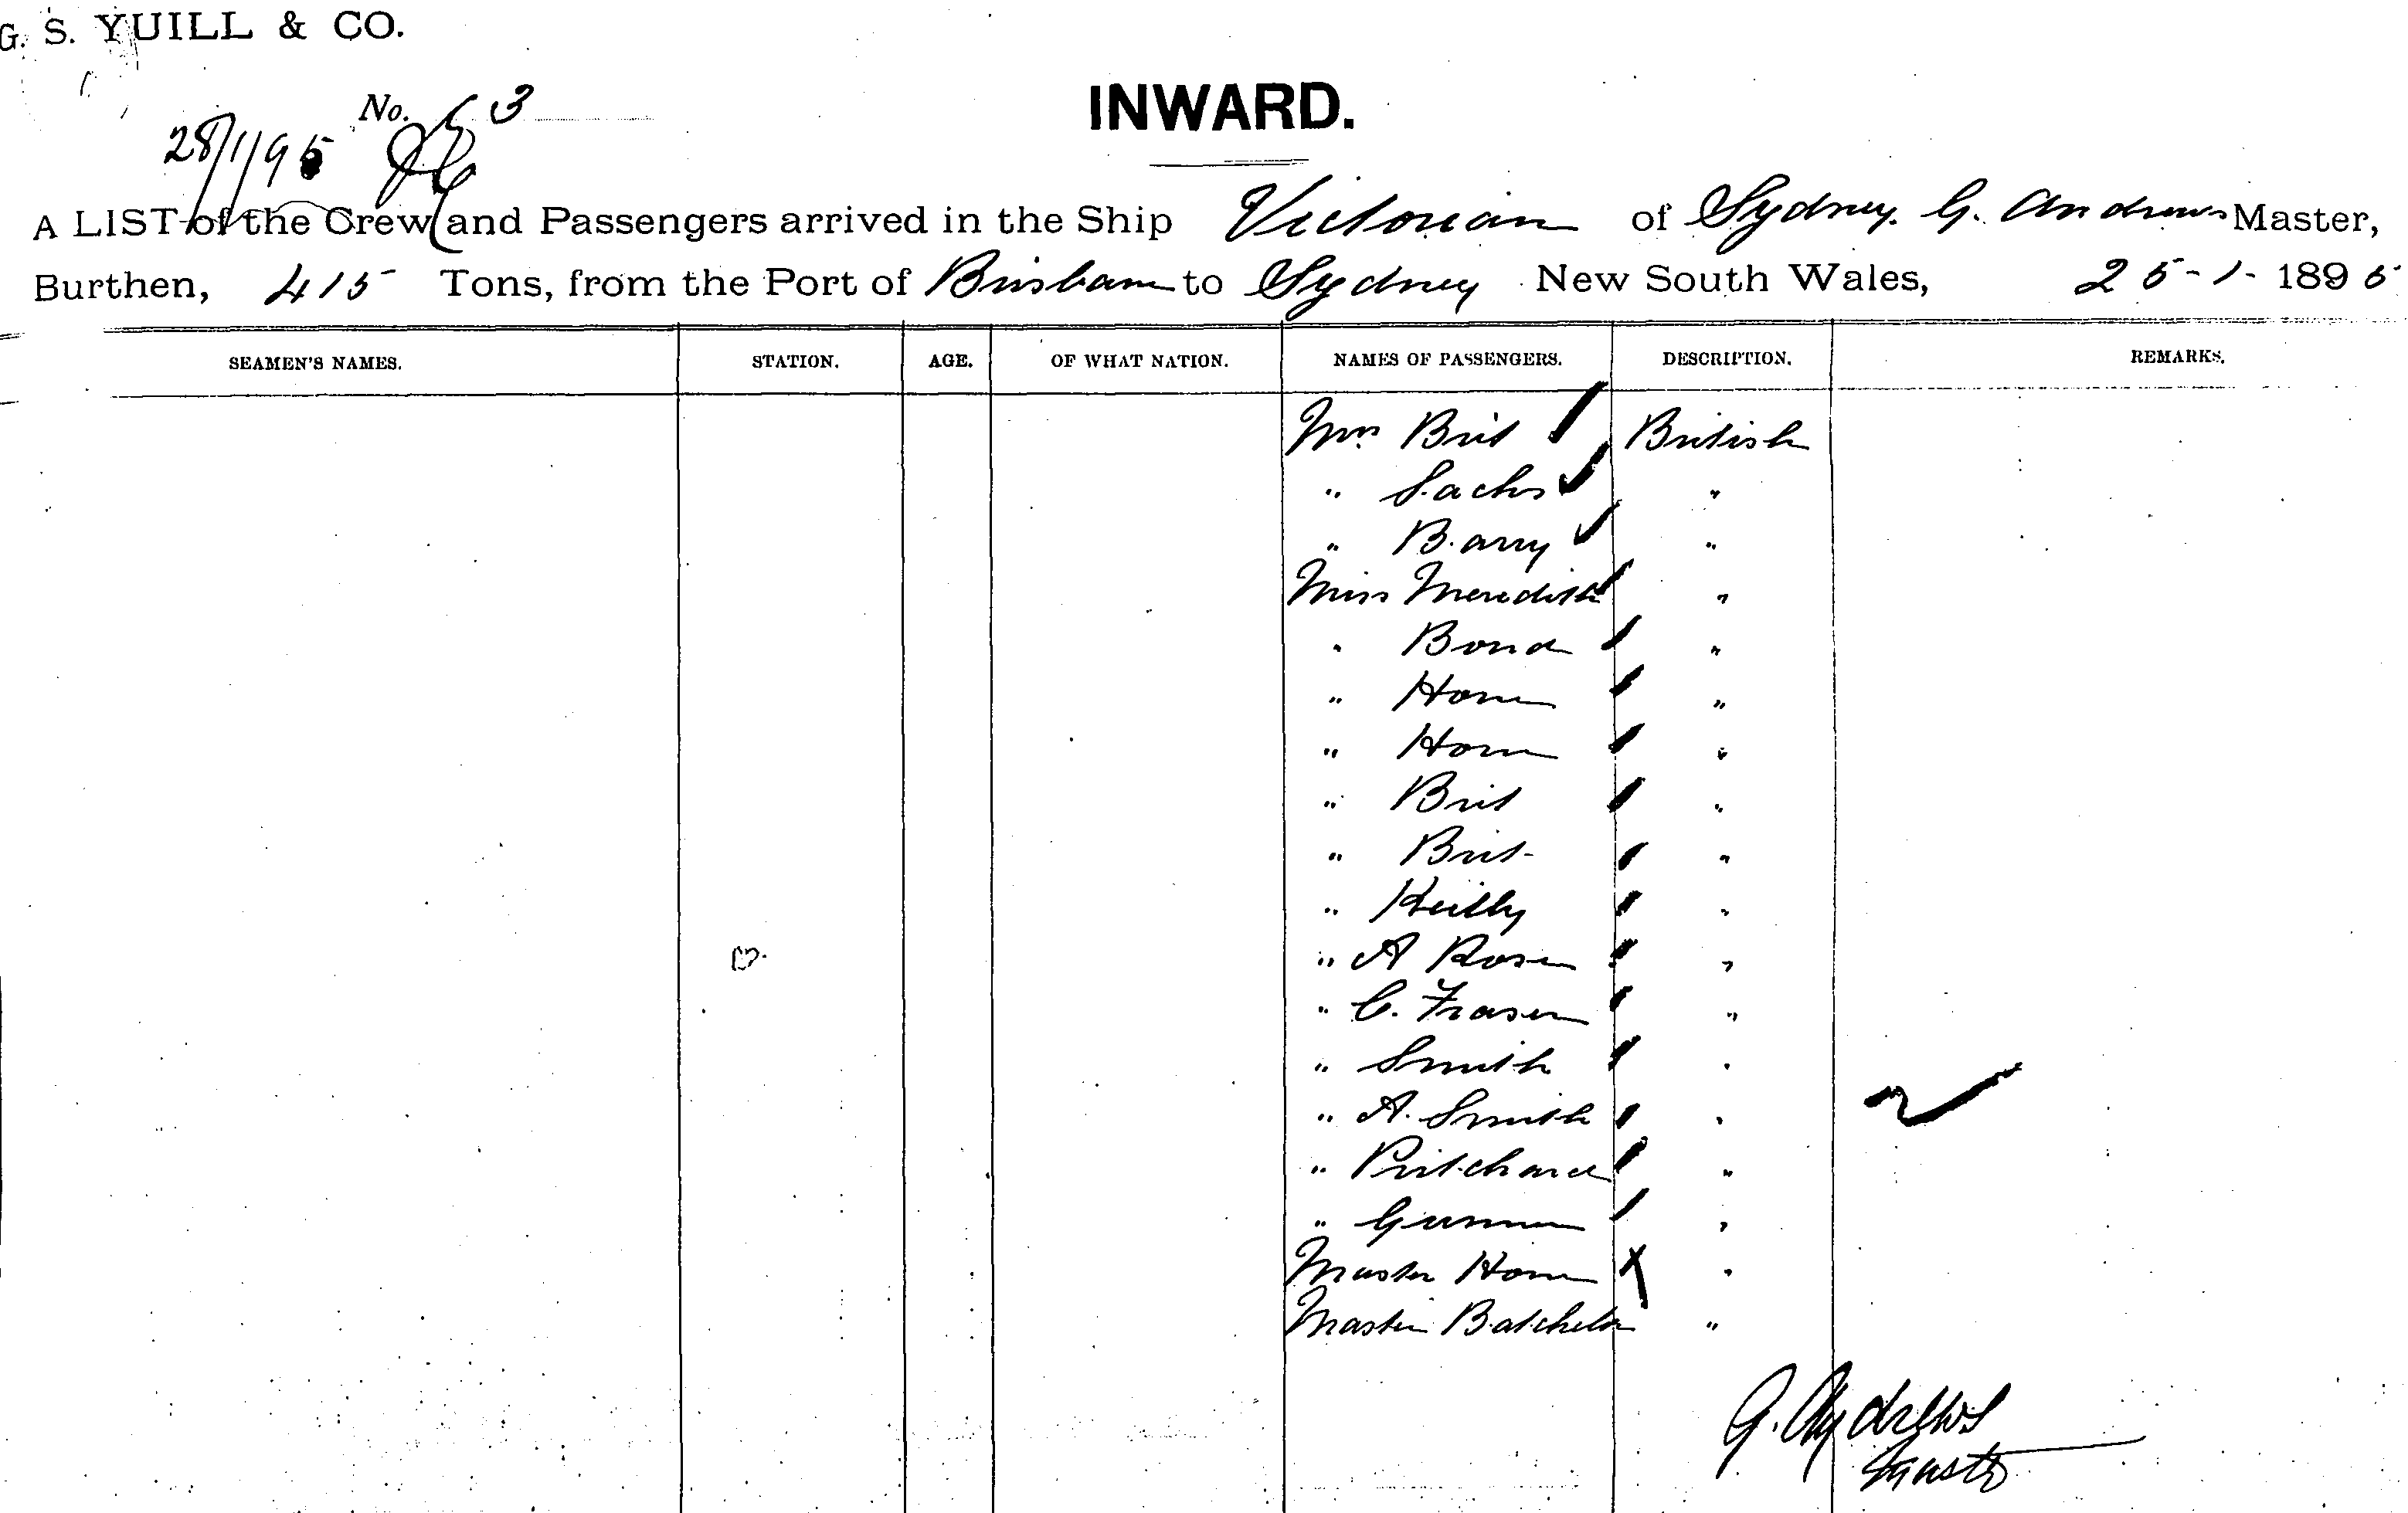 G. S. YUILL & CO.
INWARD.
No. 63
28/1/95
A LIST of the Crew and Passengers arrived in the Ship Victorian of Sydney. G. Andrews Master,
Burthen, 415 Tons, from the Port of Brisbane to Sydney New South Wales, 25-1-1895
SEAMEN'S NAMES. STATION. AGE. OF WHAT NATION. NAMES OF PASSENGERS. DESCRIPTION. REMARKS.
Mrs Brit British
" Sachs "
" Barry "
Miss Meredith "
" Bond "
" Horn "
" Horn "
" Brit "
" Brit "
" Reilly "
" A Rosen "
" C. Fraser "
" Smith "
" A. Smith "
" Pritchard "
" "
Master Horn "
Master Batchelor "
G. Andrews
Master